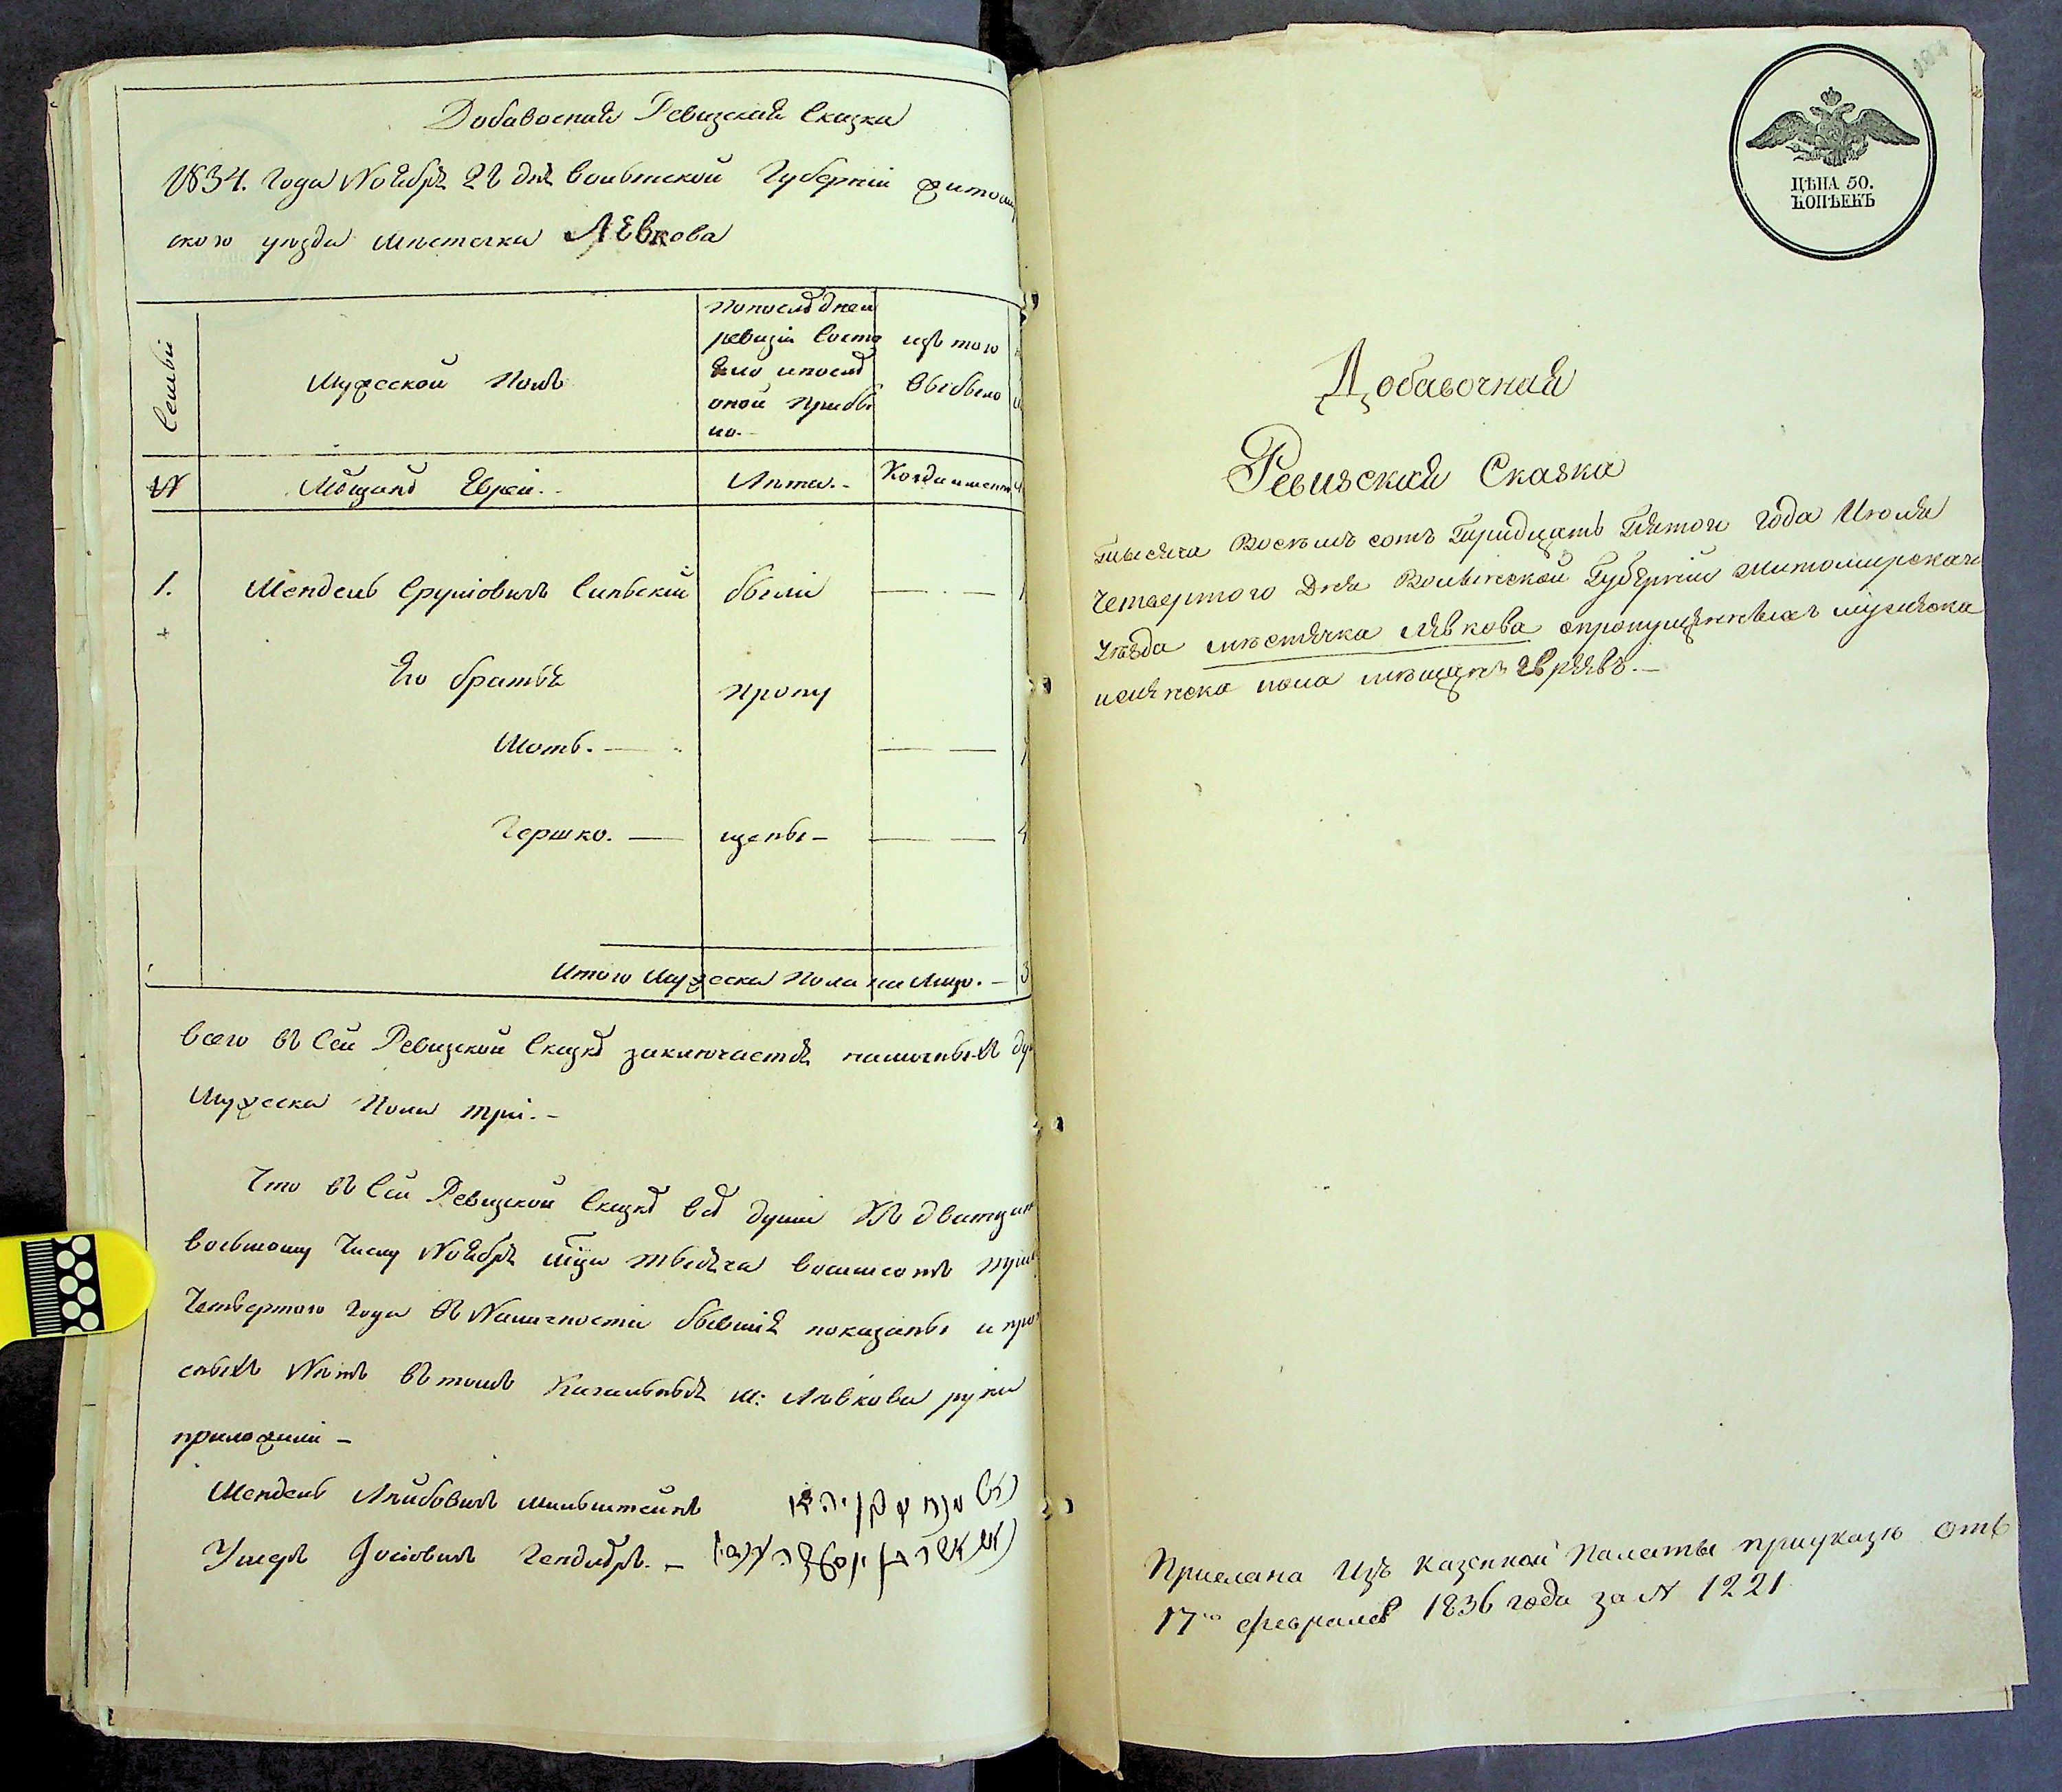 Добавочная Ревизская Сказка
1834. года Ноября 28 дня Волынской Губерніи Житомир
ского уезда мѣстечка Левкова
Семьи
Мужеской Полъ
По последнеи
ревизіи Состо
яло и послѣ
оной прибы
ло.
изъ того
Выбыло
№
Мѣщане Евреи.
Лѣта.
Когда именно
1. Мендель Сруліовичъ Сипьскій были
Его братья
пропу
Моть.
Гершко. — щены —
Итого Мужеска Пола на Лицо. — 3
Всего въ Сей Ревизской Сказкѣ заключается наличныхъ ду
Мужеска Пола три. —
Что въ Сей Ревизской Сказкѣ всѣ души къ двадцать
восьмому Числу Ноября тысяча восемсотъ трид
Четвертого года въ Наличности бывшія показаны и про
Нѣтъ въ томъ Кагальныя м: Лѣвкова руки
приложили —
Мендель Лейбовичъ Мильштейнъ
Ушеръ Іосіовичъ
ЦѢНА 50.
КОПѢЕКЪ
Добавочная
Ревизская Сказка
тысяча Восемь сотъ Тридцать Пятого года Июля
Четвертого Дня Волынской Губерніи Житомирскаго
уѣзда мѣстечка Лѣвкова о пропущенныхъ мужеска
и женска пола мѣщанъ Евреевъ. —
Прислана изъ Казенной Палаты при указѣ отъ
17го Февраля 1836 года за № 1221